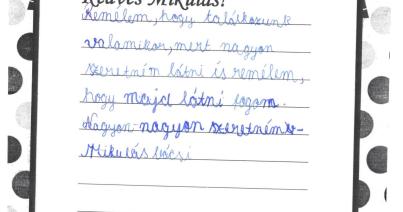 Kedves Mikulás!
Remélem, hogy találkozunk
valamikor, mert nagyon
szeretném látni és remélem,
hogy majd látni fogom.
Nagyon-nagyon szeretném
Mikulás bácsi